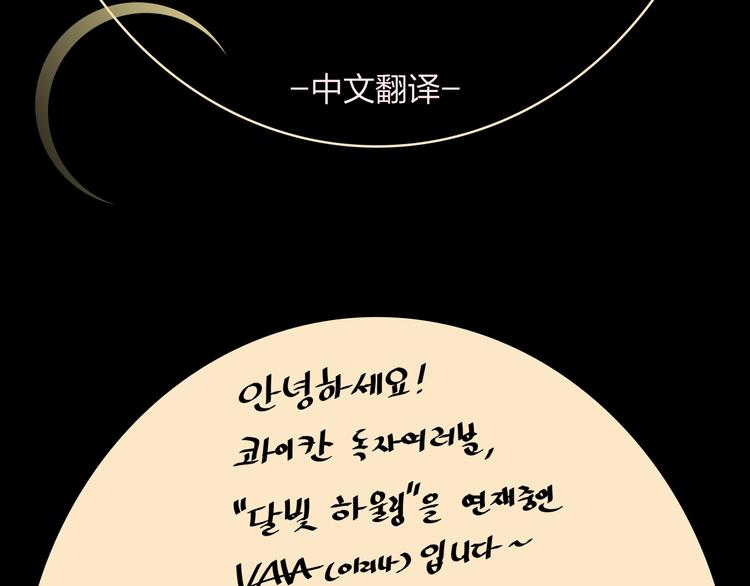 –中文翻译–
안녕하세요!
콰이칸 독자여러분,
"달빛 하울링"을 연재중인
입니다~